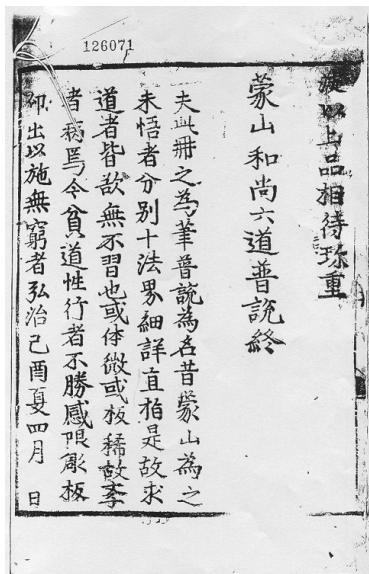 126071
旋以上品相待珎重
蒙山和尚六道普説終
夫此册之為筆普說為名昔蒙山為之
未悟者分别十法界細詳直指是故求
道者皆欲無不習也或体微或板稀故李
者病焉今貧道性行者不勝感限彫板
印出以施無窮者弘治己酉夏四月 日